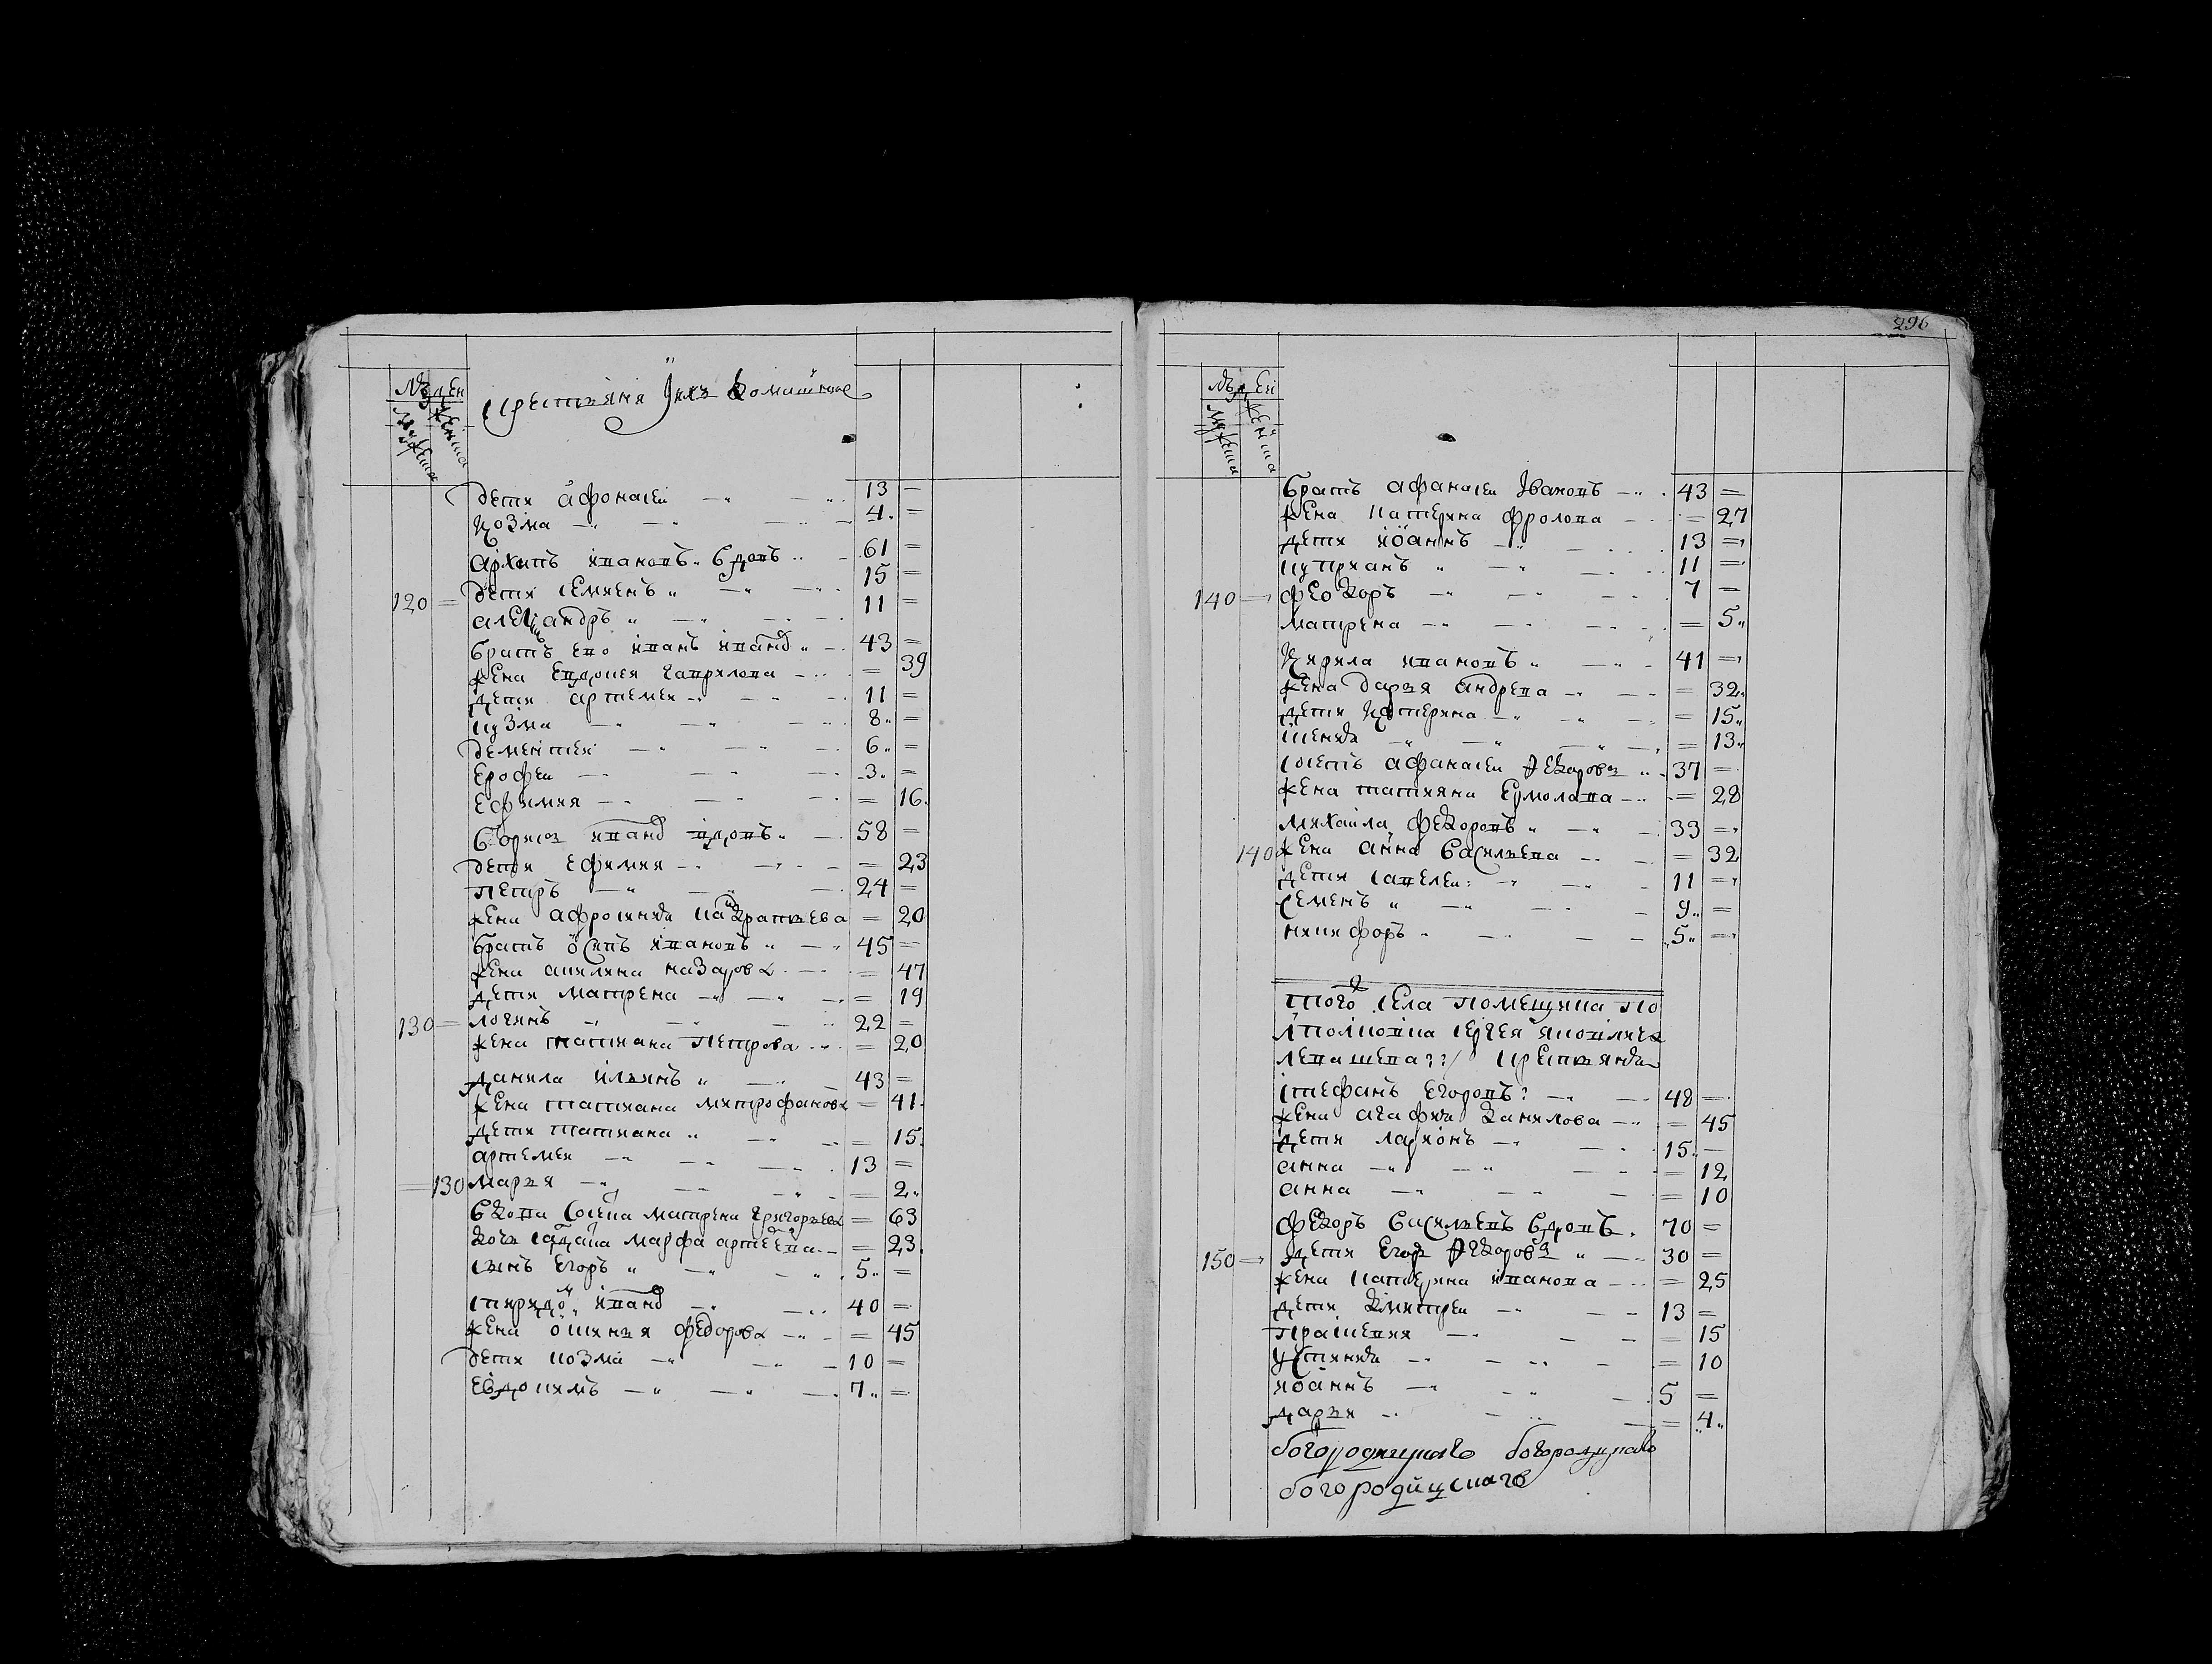 людей
мужеска
женска
крестьяня ихъ домашние
дети афонасеи 13 =
козма 4 =
архипъ ивановъ вдовъ 61 =
120 = дети семиенъ 15 =
александръ 11 =
братъ ево иванъ иванов 43 =
жена евдокея гаврилова = 39
дети артемеи 11 =
кузма 8 =
дементеи 6 =
ерофеи 3 =
ефимия = 16
борисъ иванов вдовъ 58 =
дети ефимия = 23
петръ 24 =
жена афросиния кандратьева = 20
братъ осипъ ивановъ 45 =
жена акилина назарова = 47
дети матрена = 19
130 = логинъ 22 =
жена татиана петрова = 20
данила ильинъ 43 =
жена татиана митрофанова = 41
дети татиана = 15
артемеи 13 =
= 130 марья = 2
вдова матрена григорьева = 63
марфа = 23
сынъ егоръ 5 =
спиридо иванов 40 =
жена федорова = 45
дети козма 10 =
евдокимъ 7 =
296
людей
мужеска
женска
братъ афанасеи ивановъ 43 =
жена катерина фролова = 27
дети иоаннъ 13 =
куприанъ 11 =
140 = феодоръ 7 =
матрена = 5
кирила ивановъ 41 =
жена дарья андрева = 32
дети катерина = 15
= 13
афанасеи федоровъ 37 =
жена татиана ермолава = 28
михаила федоровъ 33 =
140 жена анна васильева = 32
дети савелеи 11 =
семенъ 9 =
никифоръ 5 =
того села помещика по
лполковника сергея яковлича
левашева крестьяня
стефанъ егоровъ 48 =
жена агафия данилова = 45
дети ларионъ 15 =
анна = 12
анна = 10
федоръ васильевъ вдовъ 70 =
150 = дети егоръ федоровъ 30 =
жена катерина иванова = 25
дети димитреи 13 =
прасковия = 15
устиния = 10
иоаннъ 5 =
дарья = 4
богородицкаго богородицкаго
богородицкаго